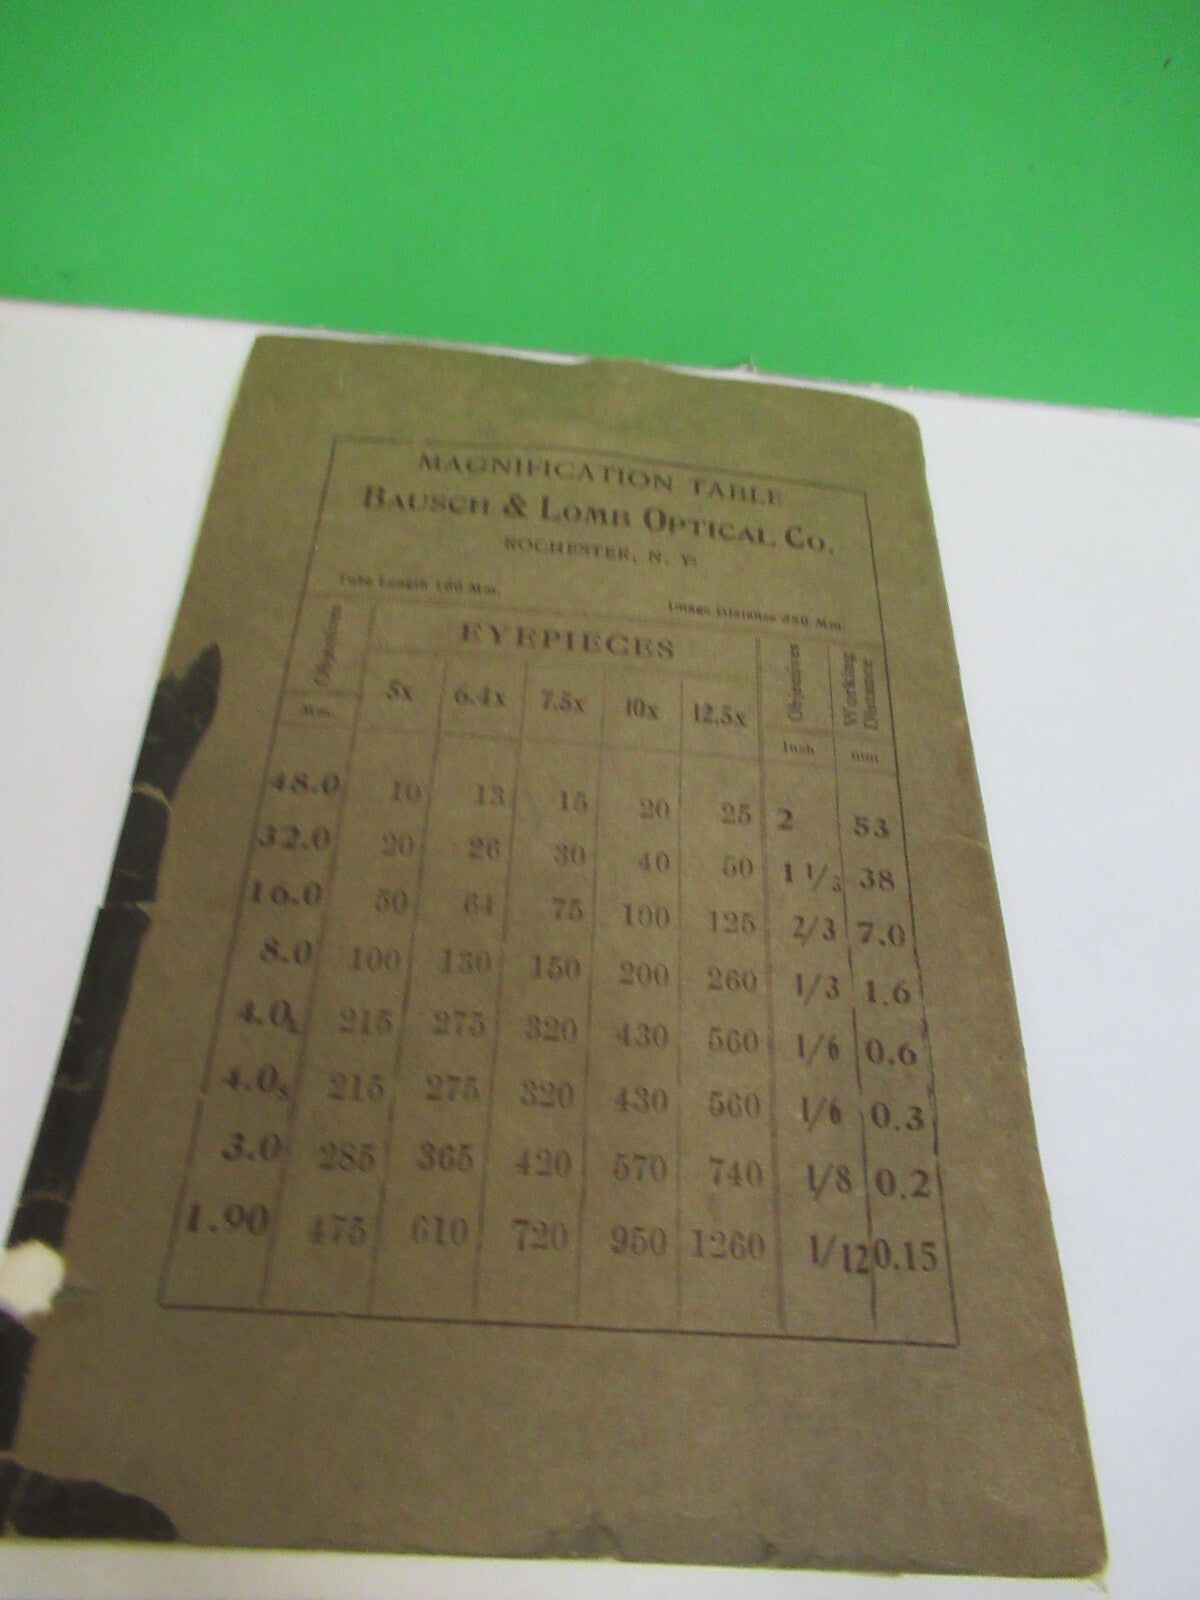 MAGNIFICATION TABLE
BAUSCH & LOMB OPTICAL CO.
ROCHESTER, N. Y.
Tube Length 160 Mm. Image Distance 250 Mm.
Objectives EYEPIECES Objectives Working Distance
Mm. 5x 6.4x 7.5x 10x 12.5x Inch mm
48.0 10 13 15 20 25 2 53
32.0 20 26 30 40 50 1 1/3 38
16.0 50 64 75 100 125 2/3 7.0
8.0 100 130 150 200 260 1/3 1.6
4.0L 215 275 320 430 560 1/6 0.6
4.0s 215 275 320 430 560 1/6 0.3
3.0 285 365 420 570 740 1/8 0.2
1.90 475 610 720 950 1260 1/12 0.15